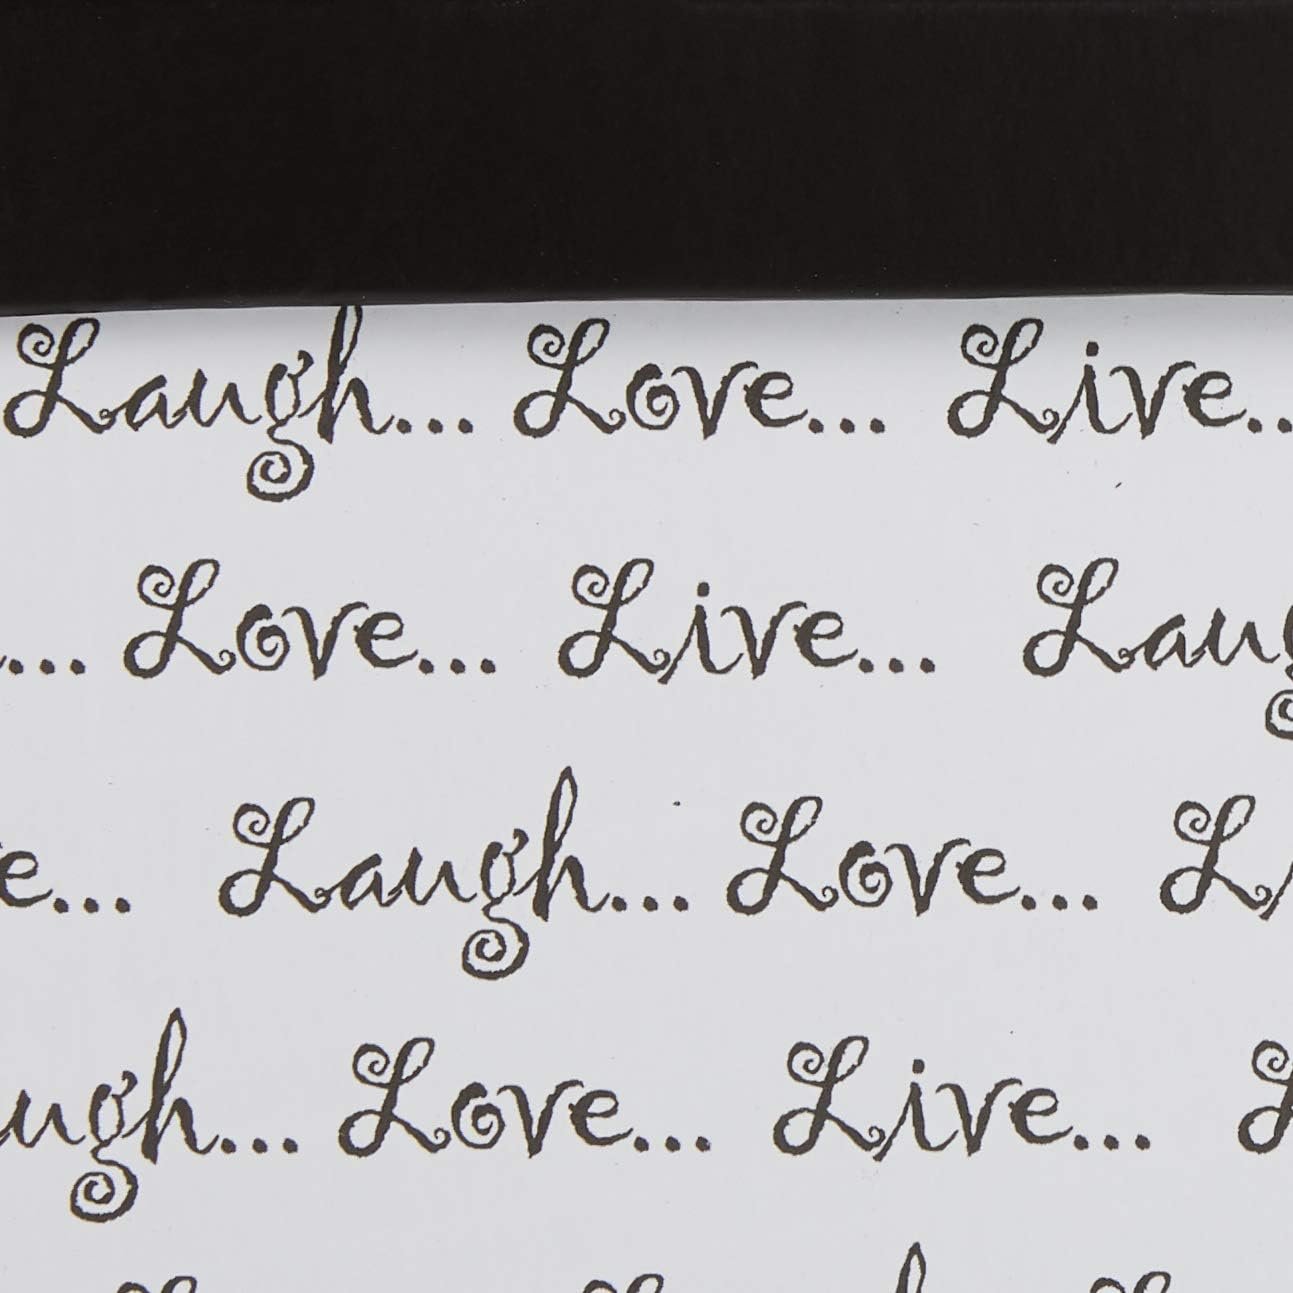 Laugh... Love... Live...
... Love... Live... Laug
e... Laugh... Love... Li
ugh... Love... Live... L